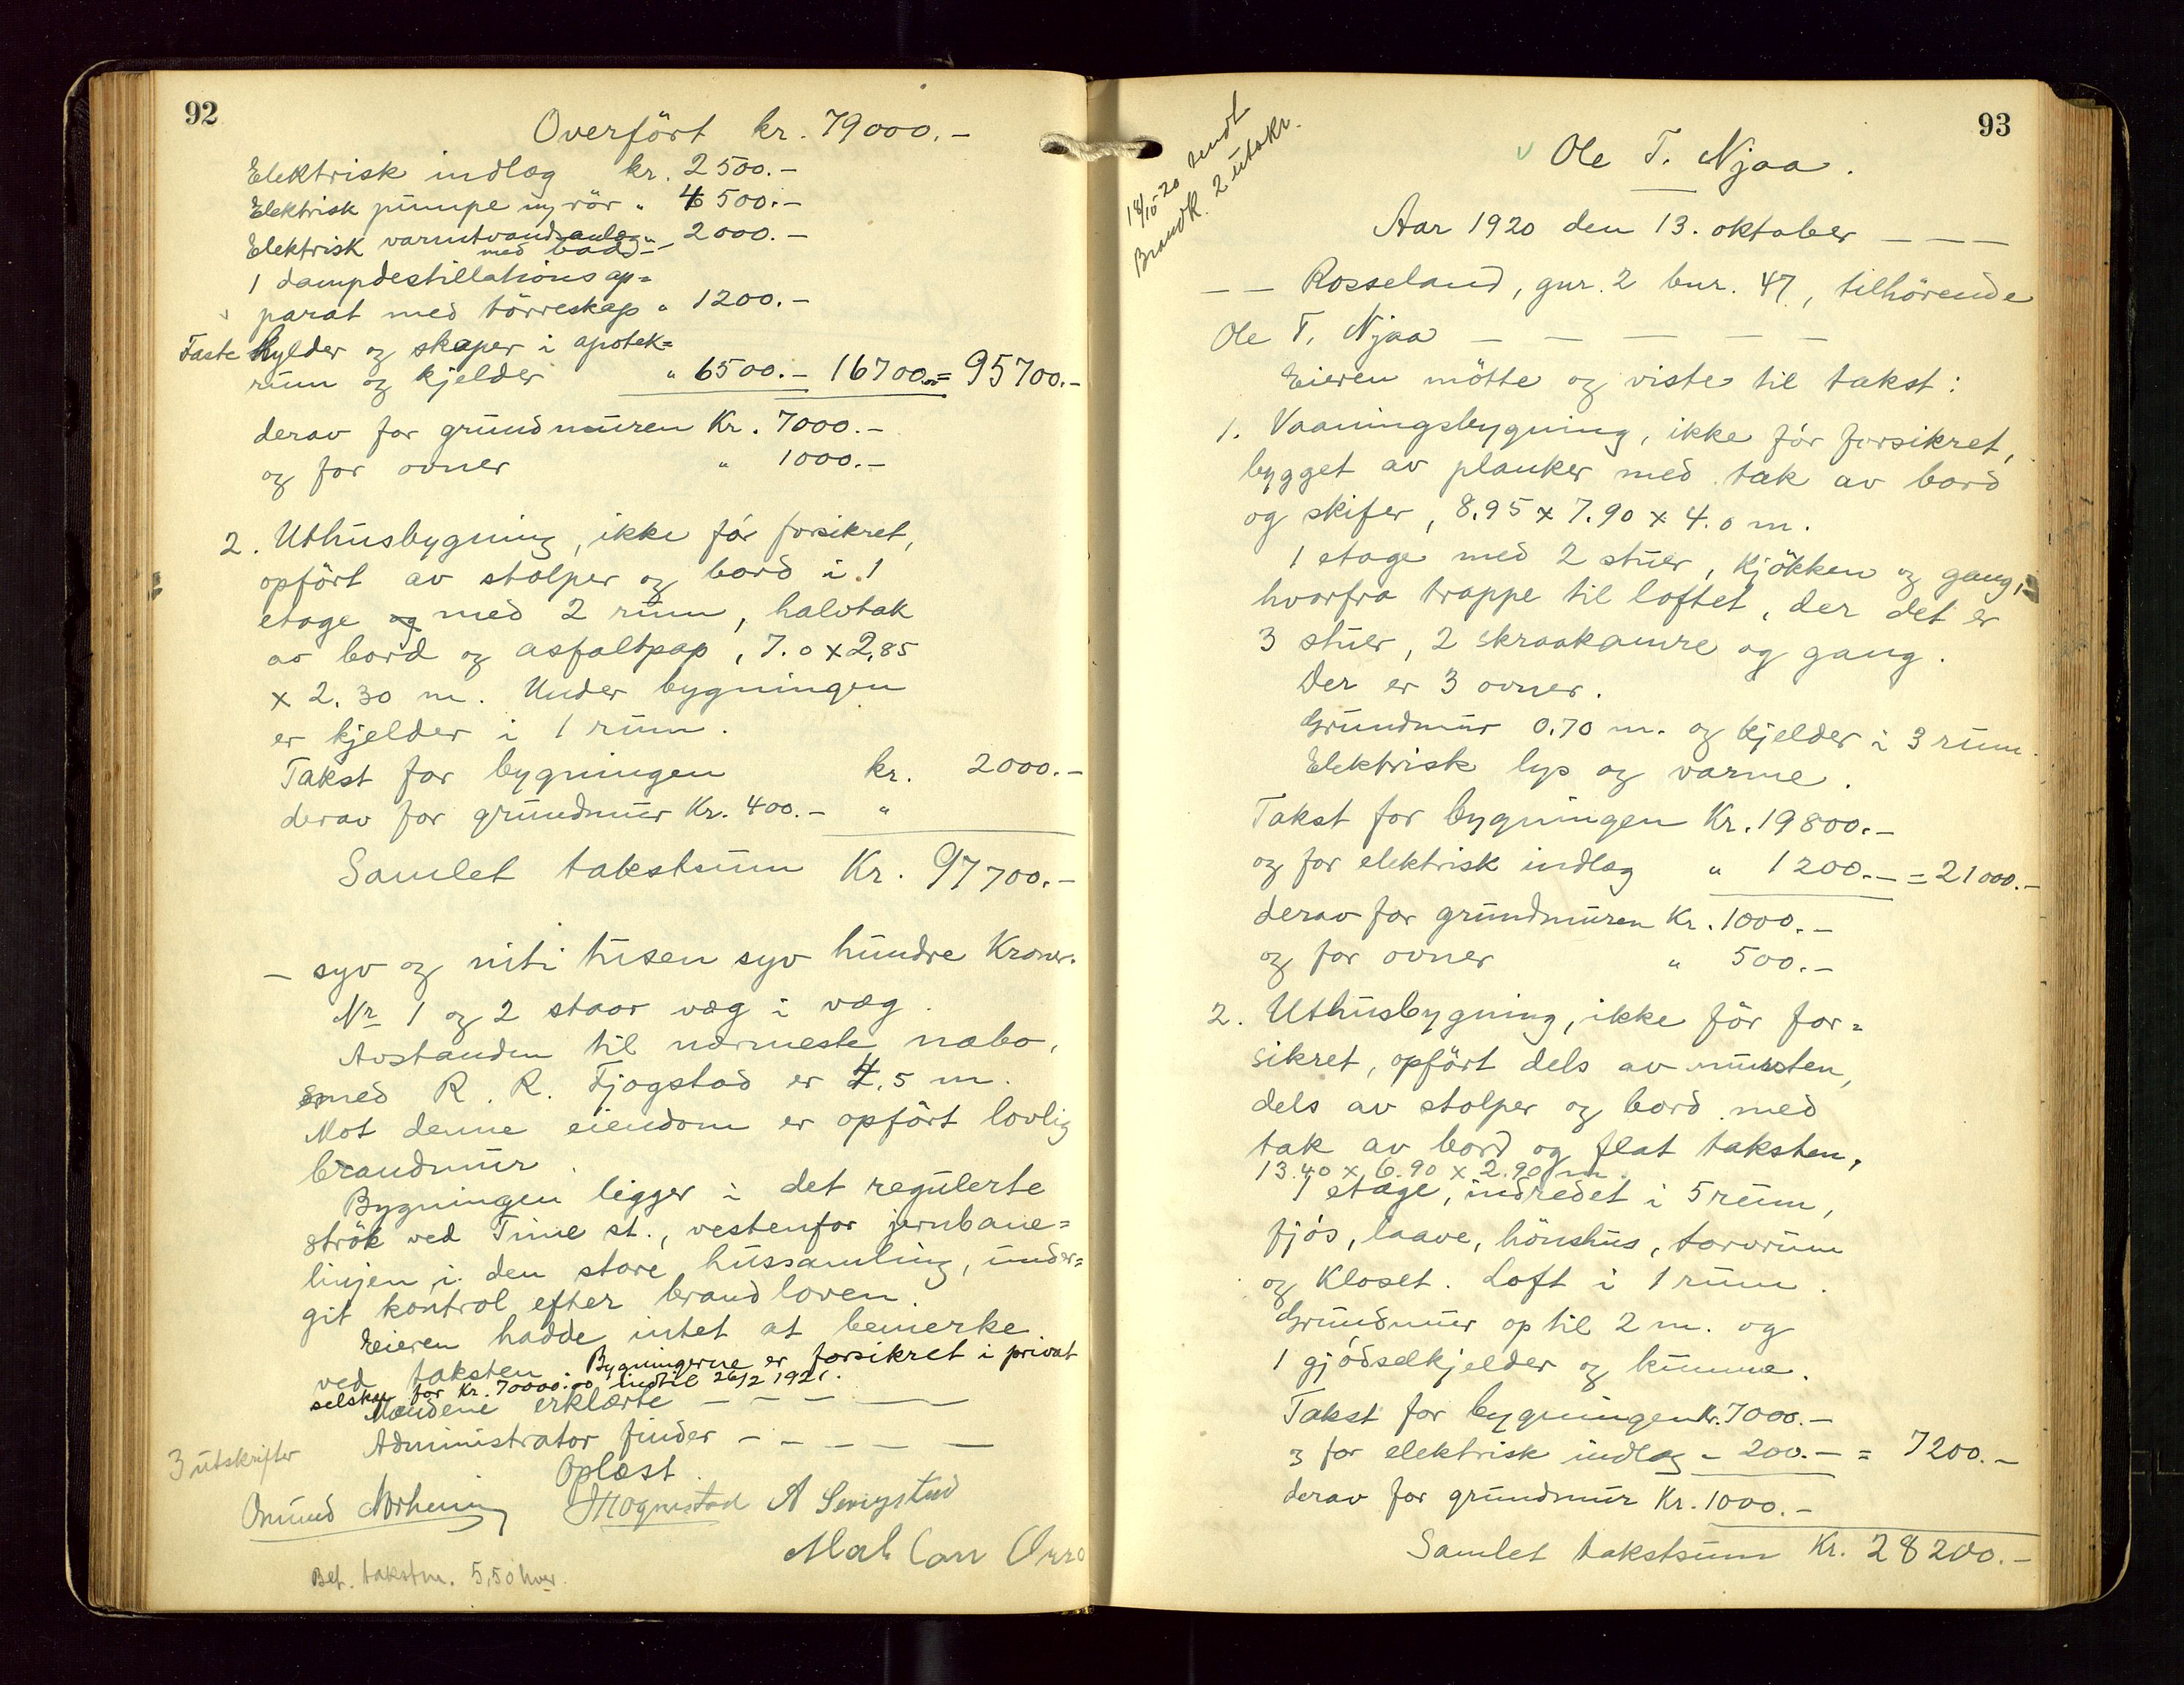 92
Overført kr. 79000.-
Elektrisk indlæg kr. 2500.-
Elektrisk pumpe m, rör " 4500.-
Elektrisk varmtvandsanlæg " 2000.-
med bad
1 dampdestillationsap=
parat med törreskap " 1200.-
Faste hylder og skaper i apotek=
rum og kjelder " 6500.- 16700.- = 95700.-
derav for grundmuren Kr. 7000.-
og for ovner " 1000.-
2. Uthusbygning, ikke för forsikret,
opfört av stolper og bord i 1
etage og med 2 rum, halvtak
av bord og asfaltpap, 7.0 x 2,85
x 2.30 m. Under bygningen
er kjelder i 1 rum.
Takst for bygningen kr. 2000.-
derav for grundmur Kr. 400.- "
Samlet takstsum Kr. 97700.-
- syv og niti tusen syv hundre Kroner.
Nr 1 og 2 staar væg i væg.
Avstanden til nærmeste nabo,
smed R. R. Fjogstad er 4.5 m.
Mot denne eiendom er opfört lovlig
brandmur.
Bygningen ligger i det regulerte
strök ved Time st., vestenfor jernbane=
linjen i den store hussamling, under=
git kontrol efter brandloven.
Eieren hadde intet at bemerke
ved taksten. Bygningerne er forsikret i privat
selskap for Kr. 70000.00 indtil 26/2 1921.
Mændene erklærte - - - -
Administrator finder - - - - -
Oplæst.
3 utskrifter
Omund Norheim Mognestad A
Bet. takstm. 5,50 hver.
93
18/10-20 sendt
Brandk. 2 utskr.
v Ole T. Njaa.
Aar 1920 den 13. oktober - - -
- - Rosseland, gnr. 2 bnr. 47, tilhörende
Ole T. Njaa - - - - - -
Eieren mötte og viste til takst:
1. Vaaningsbygning, ikke för forsikret,
bygget av planker med tak av bord
og skifer, 8.95 x 7.90 x 4.0 m.
1 etage med 2 stuer, kjökken og gang,
hvorfra trappe til loftet, der det er
3 stuer, 2 skraakamre og gang.
Der er 3 ovner.
Grundmur 0.70 m. og kjelder i 3 rum.
Elektrisk lys og varme.
Takst for bygningen Kr. 19800.-
og for elektrisk indlæg " 1200.- = 21000.-
derav for grundmuren Kr. 1000.-
og for ovner " 500.-
2. Uthusbygning, ikke för for=
sikret, opfört dels av mursten,
dels av stolper og bord med
tak av bord og flat taksten,
13.40 x 6.90 x 2.90 m.
1 etage, indredet i 5 rum,
fjös, laave, hönshus, torvrum
og kloset. Loft i 1 rum.
Grundmur op til 2 m. og
1 gjödselkjelder og kumme.
Takst for bygningen Kr. 7000.-
og for elektrisk indlæg - 200.- = 7200.-
derav for grundmur Kr. 1000.-
Samlet takstsum Kr. 28200.-